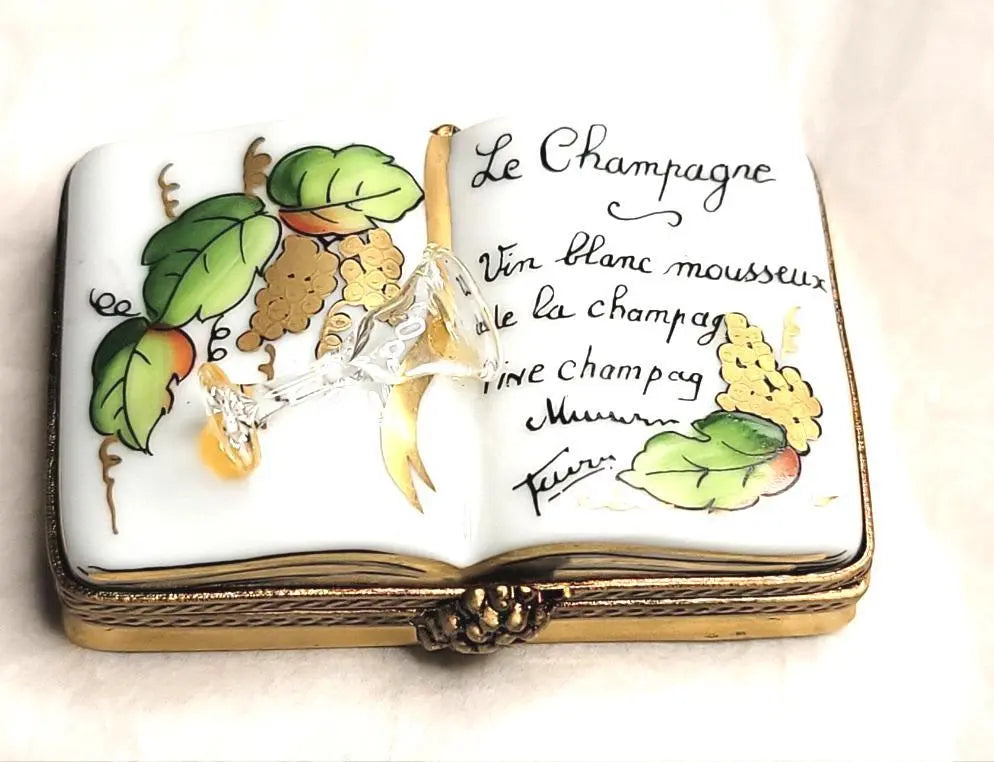 Le Champagne
Vin blanc mousseux
de la champag
fine champag